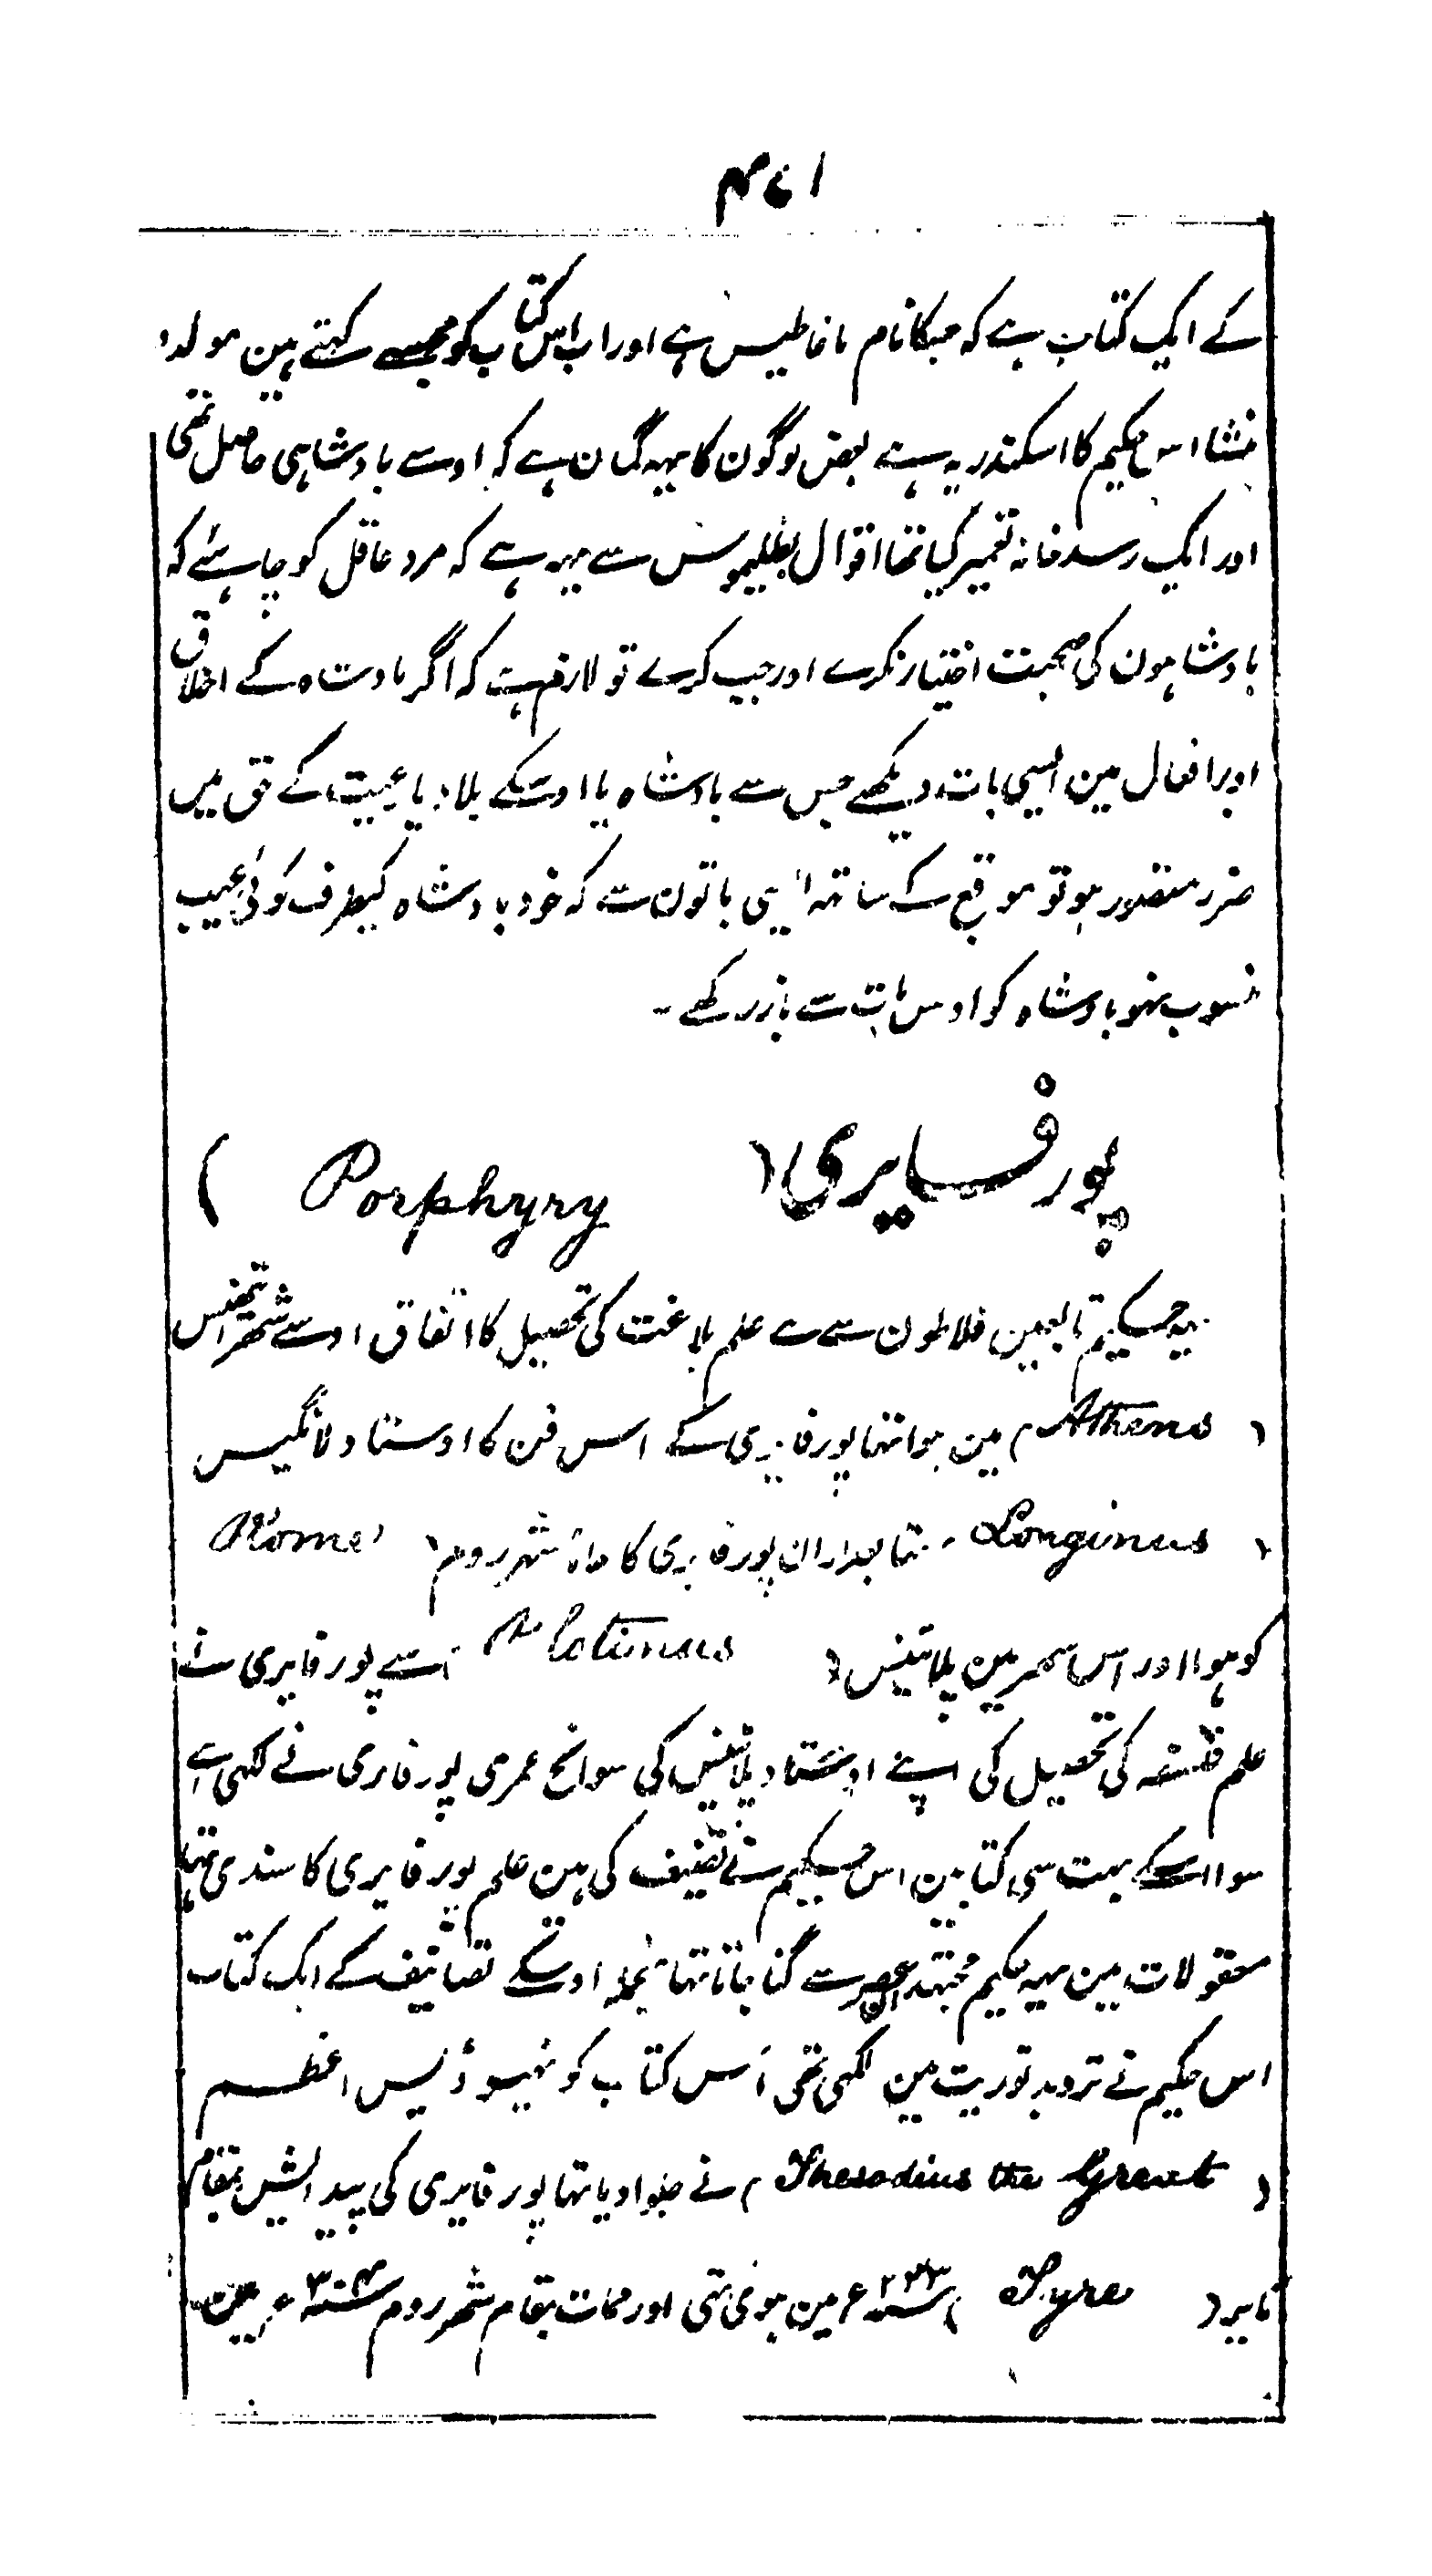 کے ایک کتاب ہے کہ جسکا نام ماغاطیس ہے اور اب اس کتاب کو مجسے کہتے ہین مولد و
منشا اس حکیم کا اسکندریہ ہے بعض لوگون کا یہہ گمان ہے کہ اوسے بادشاہی حاصل تھی
اور ایک رسدخانہ تعمیر کیا تھا اقوال بطلیموس سے یہہ ہے کہ مرد عاقل کو چاہئے کہ
بادشاہون کی صحبت اختیار نکرے اور جب کرے تو لازم ہے کہ اگر بادشاہ کے اخلاق
اور افعال مین ایسی بات دیکھے جس سے بادشاہ یا اوسکے بلاد یا رعیت کے حق میں
ضرر متصور ہو تو موقع کے ساتھ ایسی باتون سے کہ خود بادشاہ کیطرف کوئی عیب
منسوب نہو بادشاہ کو اوس بات سے باز رکھے -
پورفایری ( Porphyry )
یہہ حکیم تابعین فلاطون سے ہے علم بلاغت کی تحصیل کا اتفاق اوسے شہر اتھنس
( Athens ) مین ہوا تھا پورفایری کے اس فن کا اوستاد لانگیس
( Longinus ) تھا بعد ازان پورفایری کا جانا شہر روم ( Rome )
کو ہوا اور اس شہر مین پلاٹینس ( Plotinus ) سے پورفایری نے
علم فلسفہ کی تحصیل کی اپنے اوستاد پلاٹینس کی سوانح عمری پورفایری نے لکھی ہے
سوا اسکے بہت سی کتابین اس حکیم نے تصنیف کی ہین علم پورفایری کا سندی تہا
معقولات مین یہہ حکیم مجتہد العصر سے گنا جاتا تھا منجملہ اوسکے تصانیف کے ایک کتاب
اس حکیم نے تردید توریت مین لکھی تھی اس کتاب کو تھیوڈیس اعظم
( Thesodius the Great ) نے جلوا دیا تھا پورفایری کی پیدائش بمقام
تایر ( Tyre ) سنہ ۲۳۳ ء مین ہوئی تھی اور ممات بمقام شہر روم سنہ ۳۰۴ ء مین